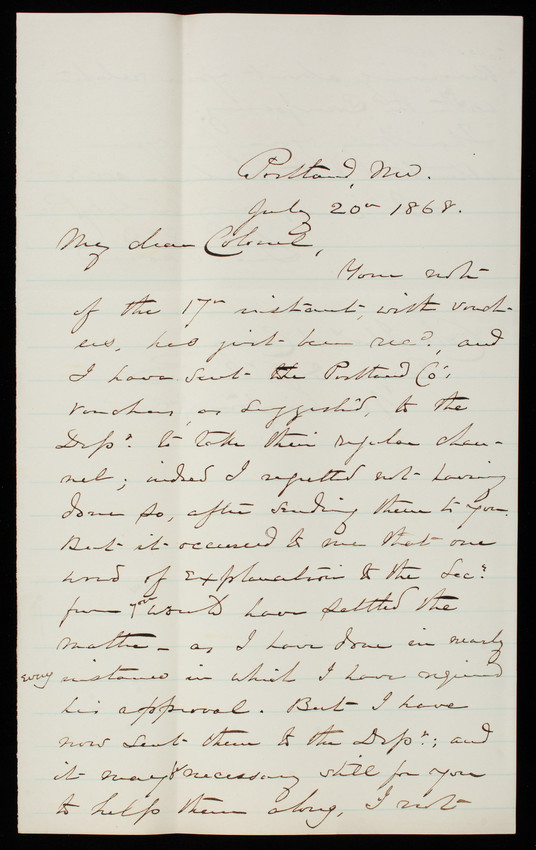 Portland, Me.
July 20th 1868.
My dear Colonel,
Your note
of the 17th instant, with vouch-
ers, has just been recd, and
I have sent the Portland Co's
vouchers, as suggested, to the
Dept. to take their regular chan-
nel; indeed I regretted not having
done so, after sending them to you.
But it occurred to me that one
word of explanation to the Secy
from you would have settled the
matter – as I have done in nearly
every instance in which I have required
his approval. But I have
now sent them to the Dept.; and
it may be necessary still for you
to help them along. I not